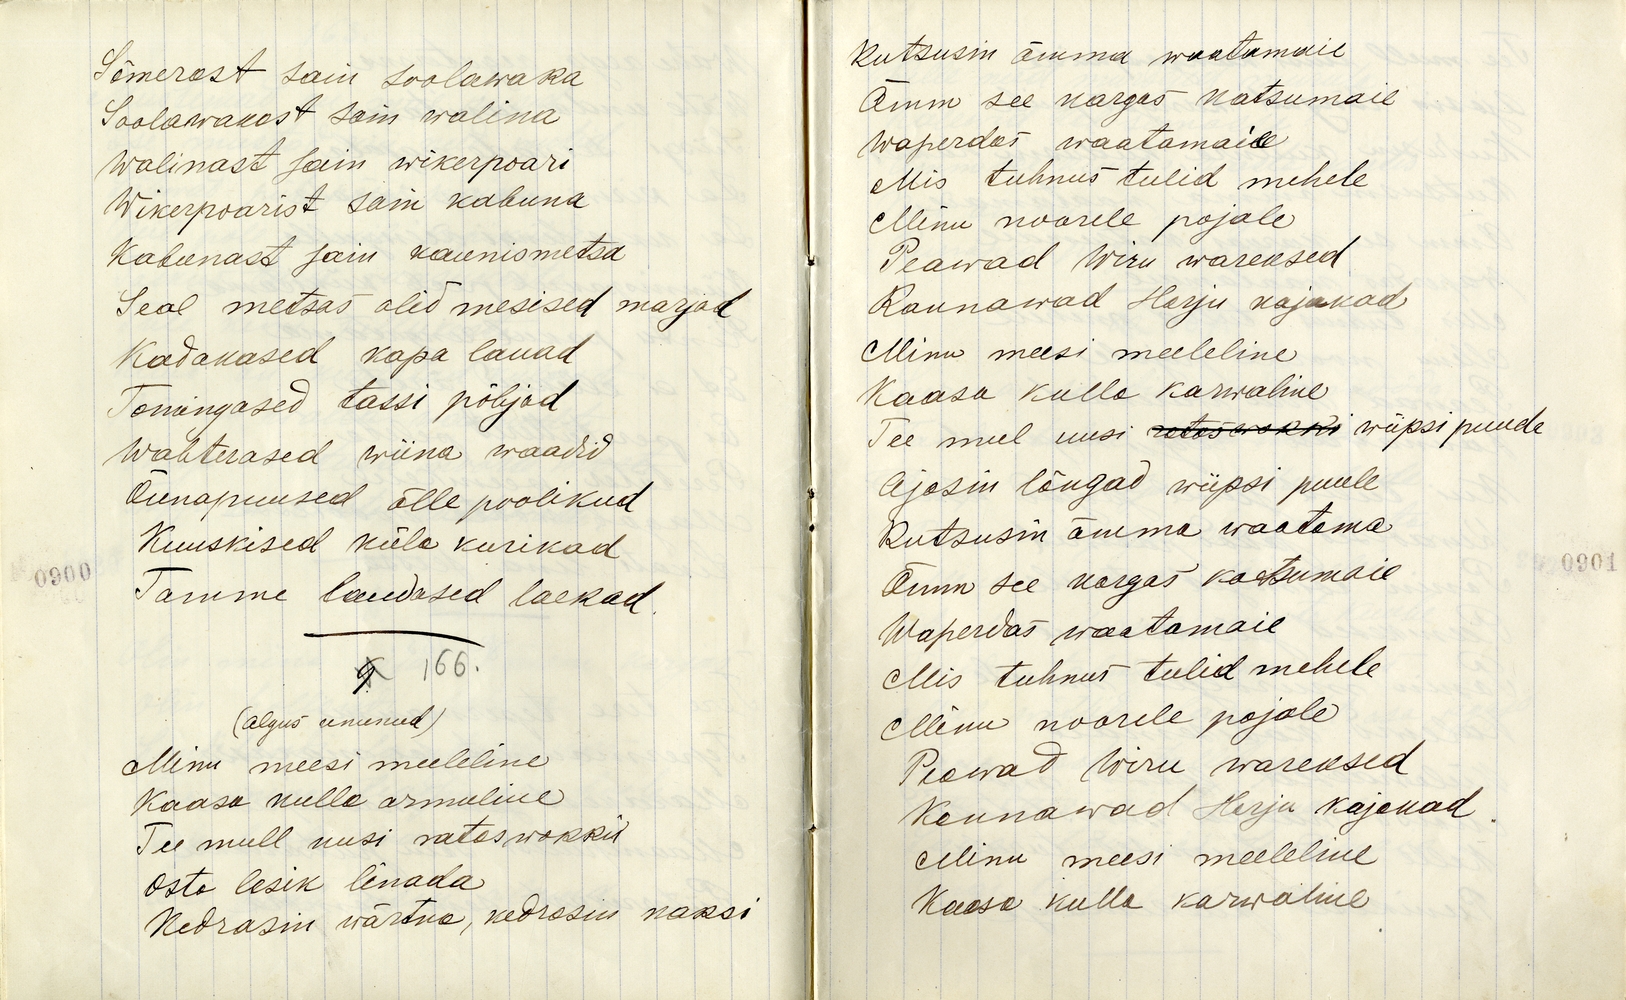 Sõmerast sain soolawaka
Soolawakast sain walina
Walinast sain wikerpoari
Wikerpoarist sain kabuna
Kabunast sain kaunismetsa
Seal metsas olid mesised marjad
Kadakased kapa lauad
Tomingased tassi põhjad
Wahterased wiina waadid
Õunapuused õlle poolikud
Kuuskised küla kurikad
Tamme laudased laekad.
9 166.
(algus ununud)
Minu meesi meeleline
Kaasa kulla armuline
Tee mull uusi ratoswokki
Osta lesik linada
Kedrasin wärtna, kedrasin kaksi
0900
Kutsusin ämma waatamaie
Ämm see kargas katsumaie
Waperdas waatamaie
Mis tuhnus tulid mehele
Minu noorele pojale
Peawad Wiru wareksed
Raunawad Harju kajakad
Minu meesi meeleline
Kaasa kulla karwaline
Tee mul uusi ratoswokki wiipsipuude
Ajasin lõngad wiipsi puule
Kutsusin ämma waatama
Ämm see kargas kaatsumaie
Waperdas waatamaie
Mis tuhnus tulid mehele
Minu noorele pojale
Peawad Wiru wareksed
Kounawad Harju kajakad.
Minu meesi meeleline
Kaasa kulla karwaline
0901